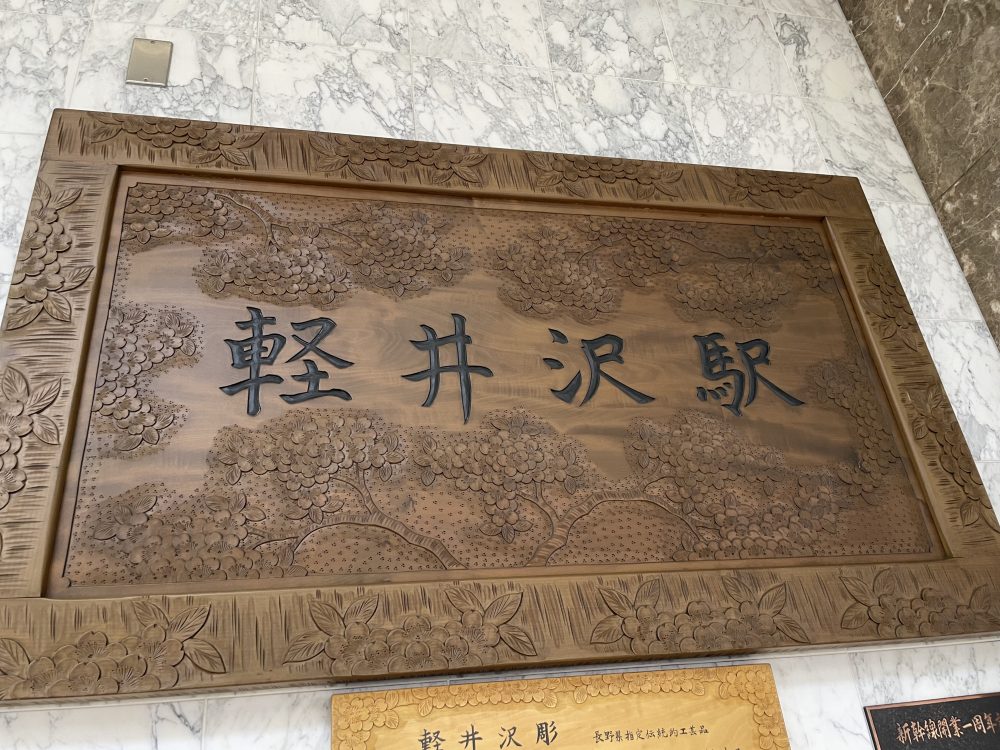 軽井沢駅
軽井沢彫
長野県指定伝統的工芸品
新幹線開業一周年